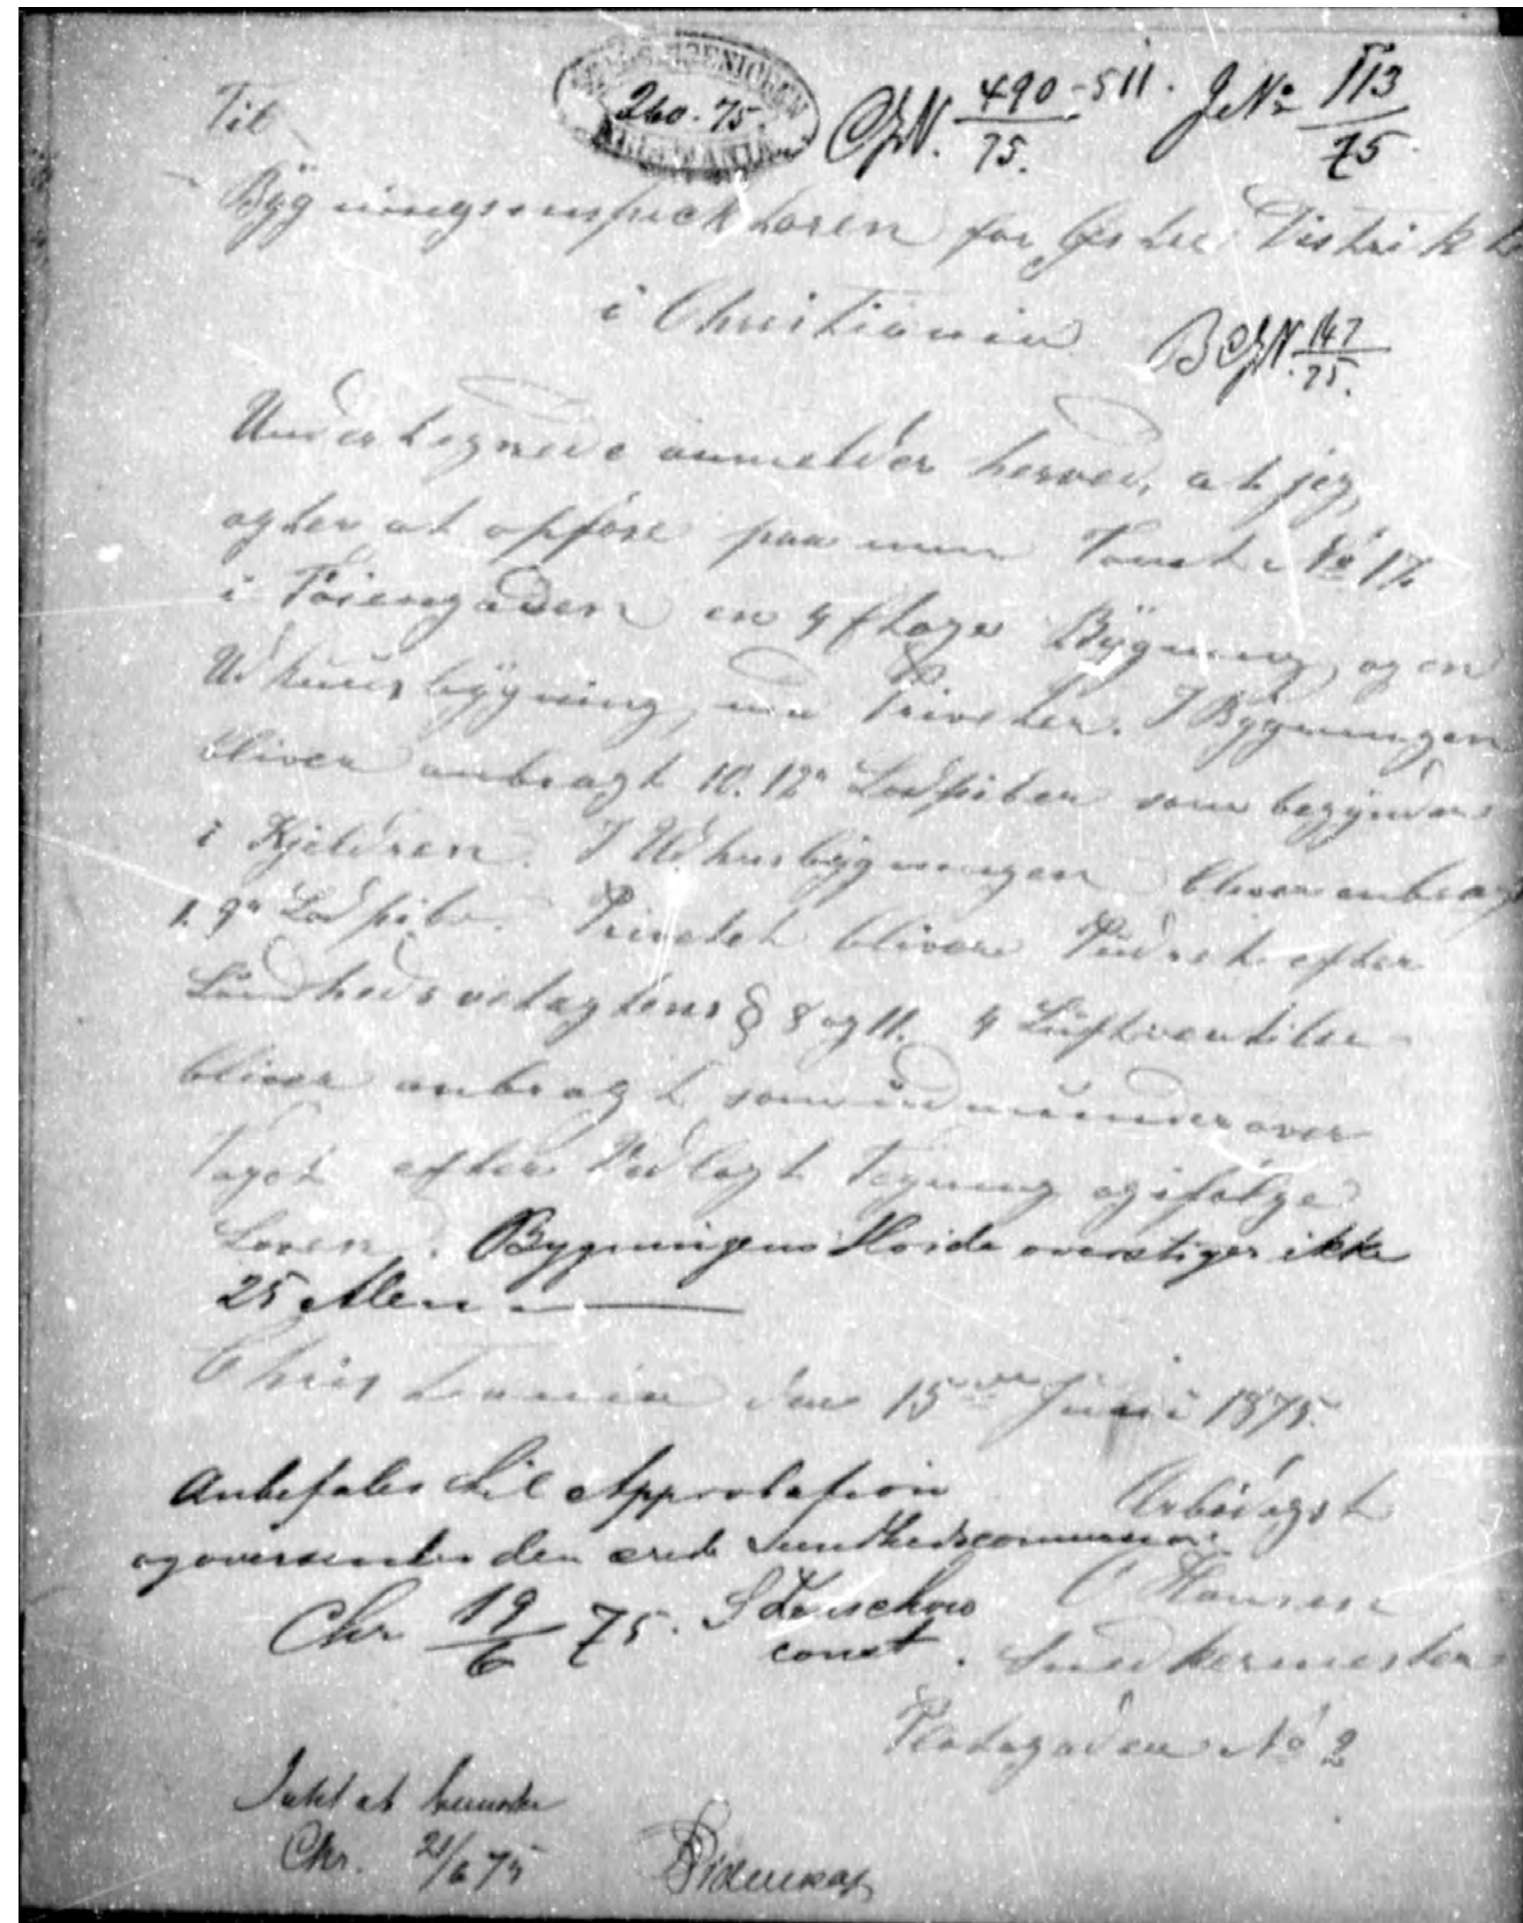 260-75
CJN. 490-511. J. No 113
75. 75
Til
Bygningsinspecktøren for Østre Distrikt
i Christiania
B CJN. 147
75.
Undertegnede anmelder herved, at jeg
agter at opføre paa min Tomt No 17
i Tøiengaden en 4 Etages Bygning, og en
Udhuusbygning, med Priveter. I Bygningen
bliver anbragt 10. 12" Lodpiber som begynder
i Kjeldren. I Udhusbygningen bliver anbragt
1. 9" Lodpibe. Privetet bliver Pudret efter
Sundhedsvetagtens § 8 og 11. 4 Luftventiler
bliver anbragt som udmunder over
Taget efter Vedlagt Tegning og ifølge
Loven. Bygningens Høide overstiger ikke
25 Alen
Christiania den 15de Juni 1875.
Anbefales til Approbation Ærbødigst
og oversendes den ærede Sundhedscommission
Chr 19/6 75. const. Hansen
Snedkermester
Platagaden No 2
Intet at bemærke
Chr. 21/6 75